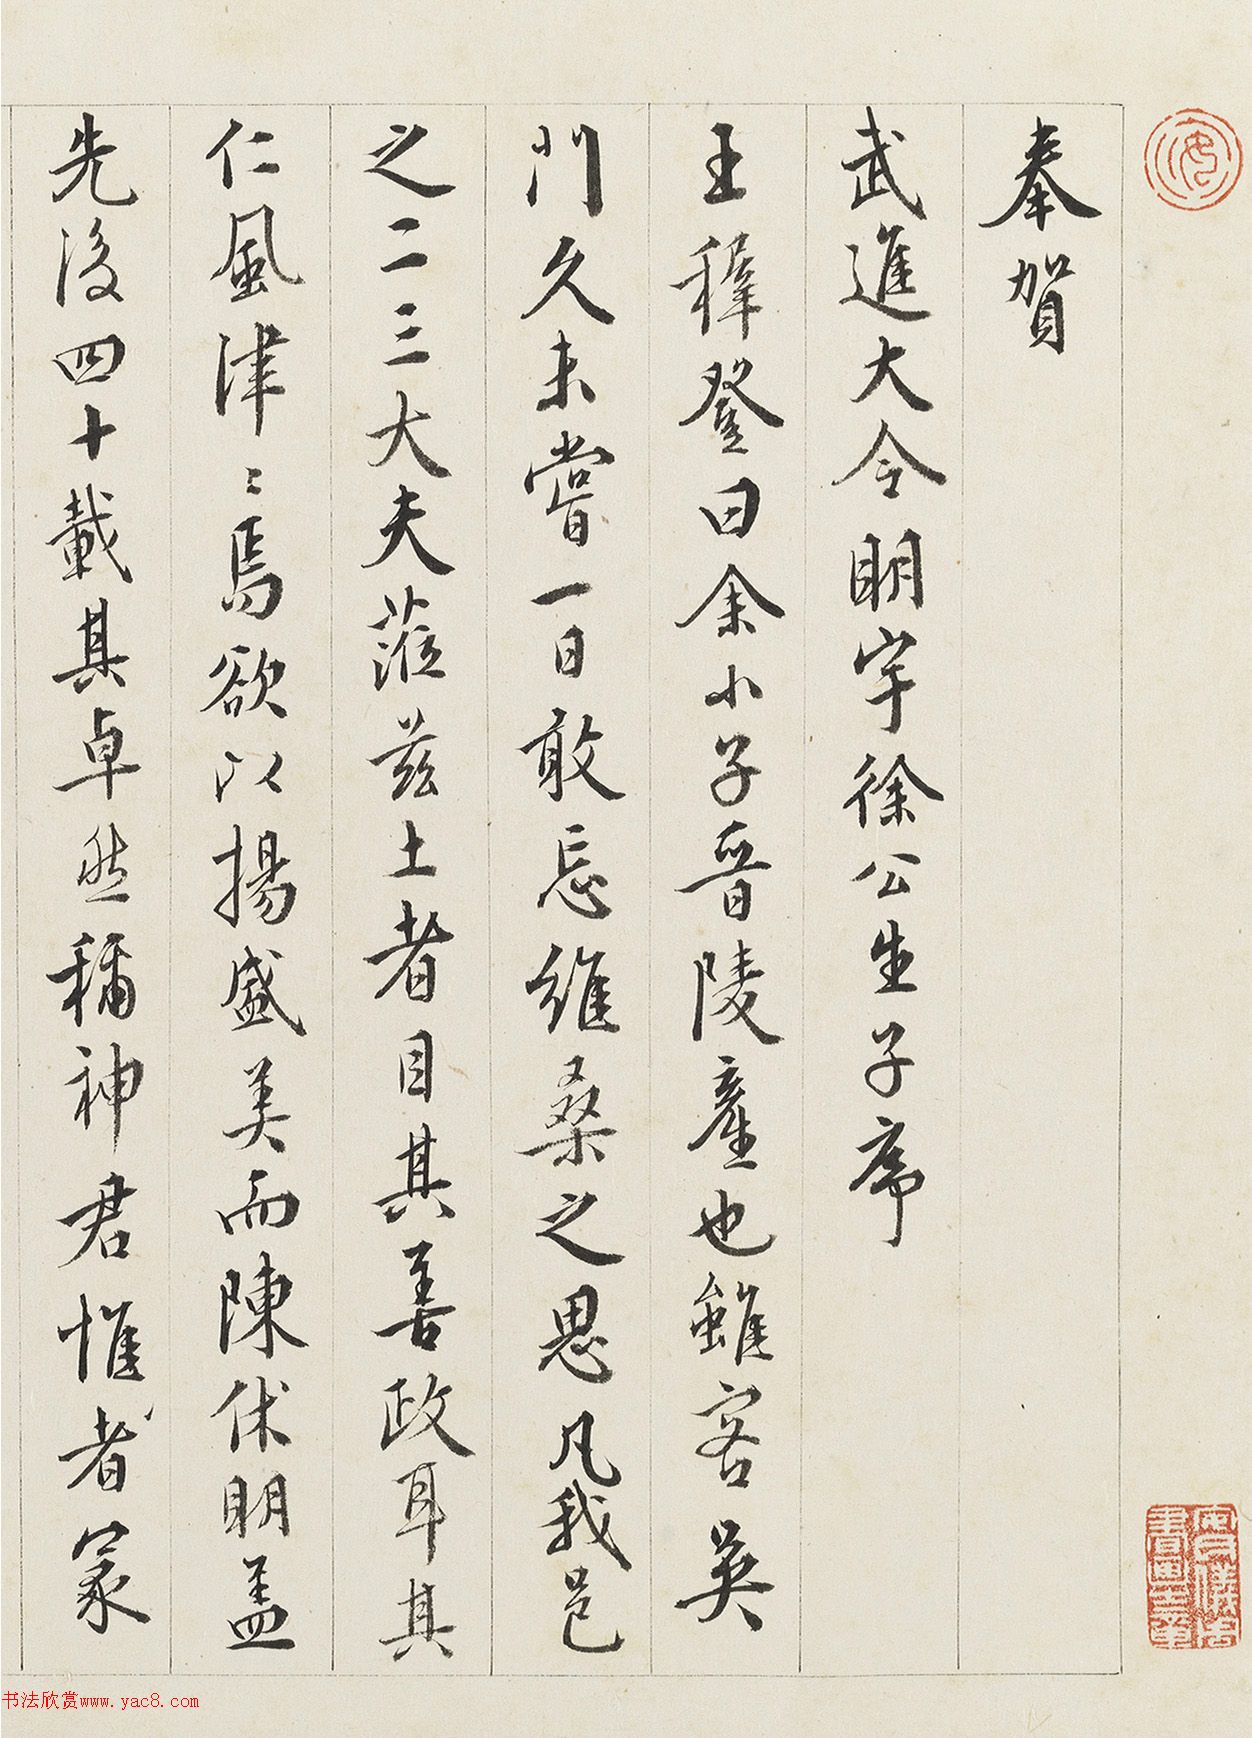 奉賀
武進大令明宇徐公生子序
王穉登曰余小子晉陵産也雖客吳
門久未嘗一日敢忘維桑之思凡我邑
之二三大夫蒞茲土者目其善政耳其
仁風津〻焉欲以揚盛美而陳休明盖
先後四十載其卓然稱神君惟者冡
书法欣赏www.yac8.com